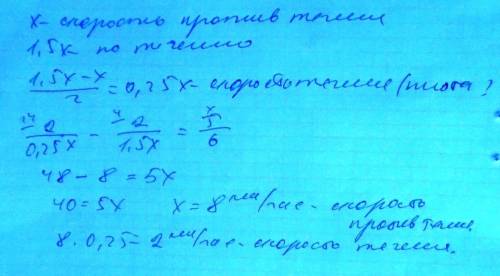 x - скорость против течения
1,5x по течению
(1,5x - x)/2 = 0,25x - скорость течения (плота)
2/0,25x - 2/1,5x = 5/6
48 - 8 = 5x
40 = 5x x = 8 км/час - скорость против течен.
8 · 0,25 = 2 км/час - скорость течения.